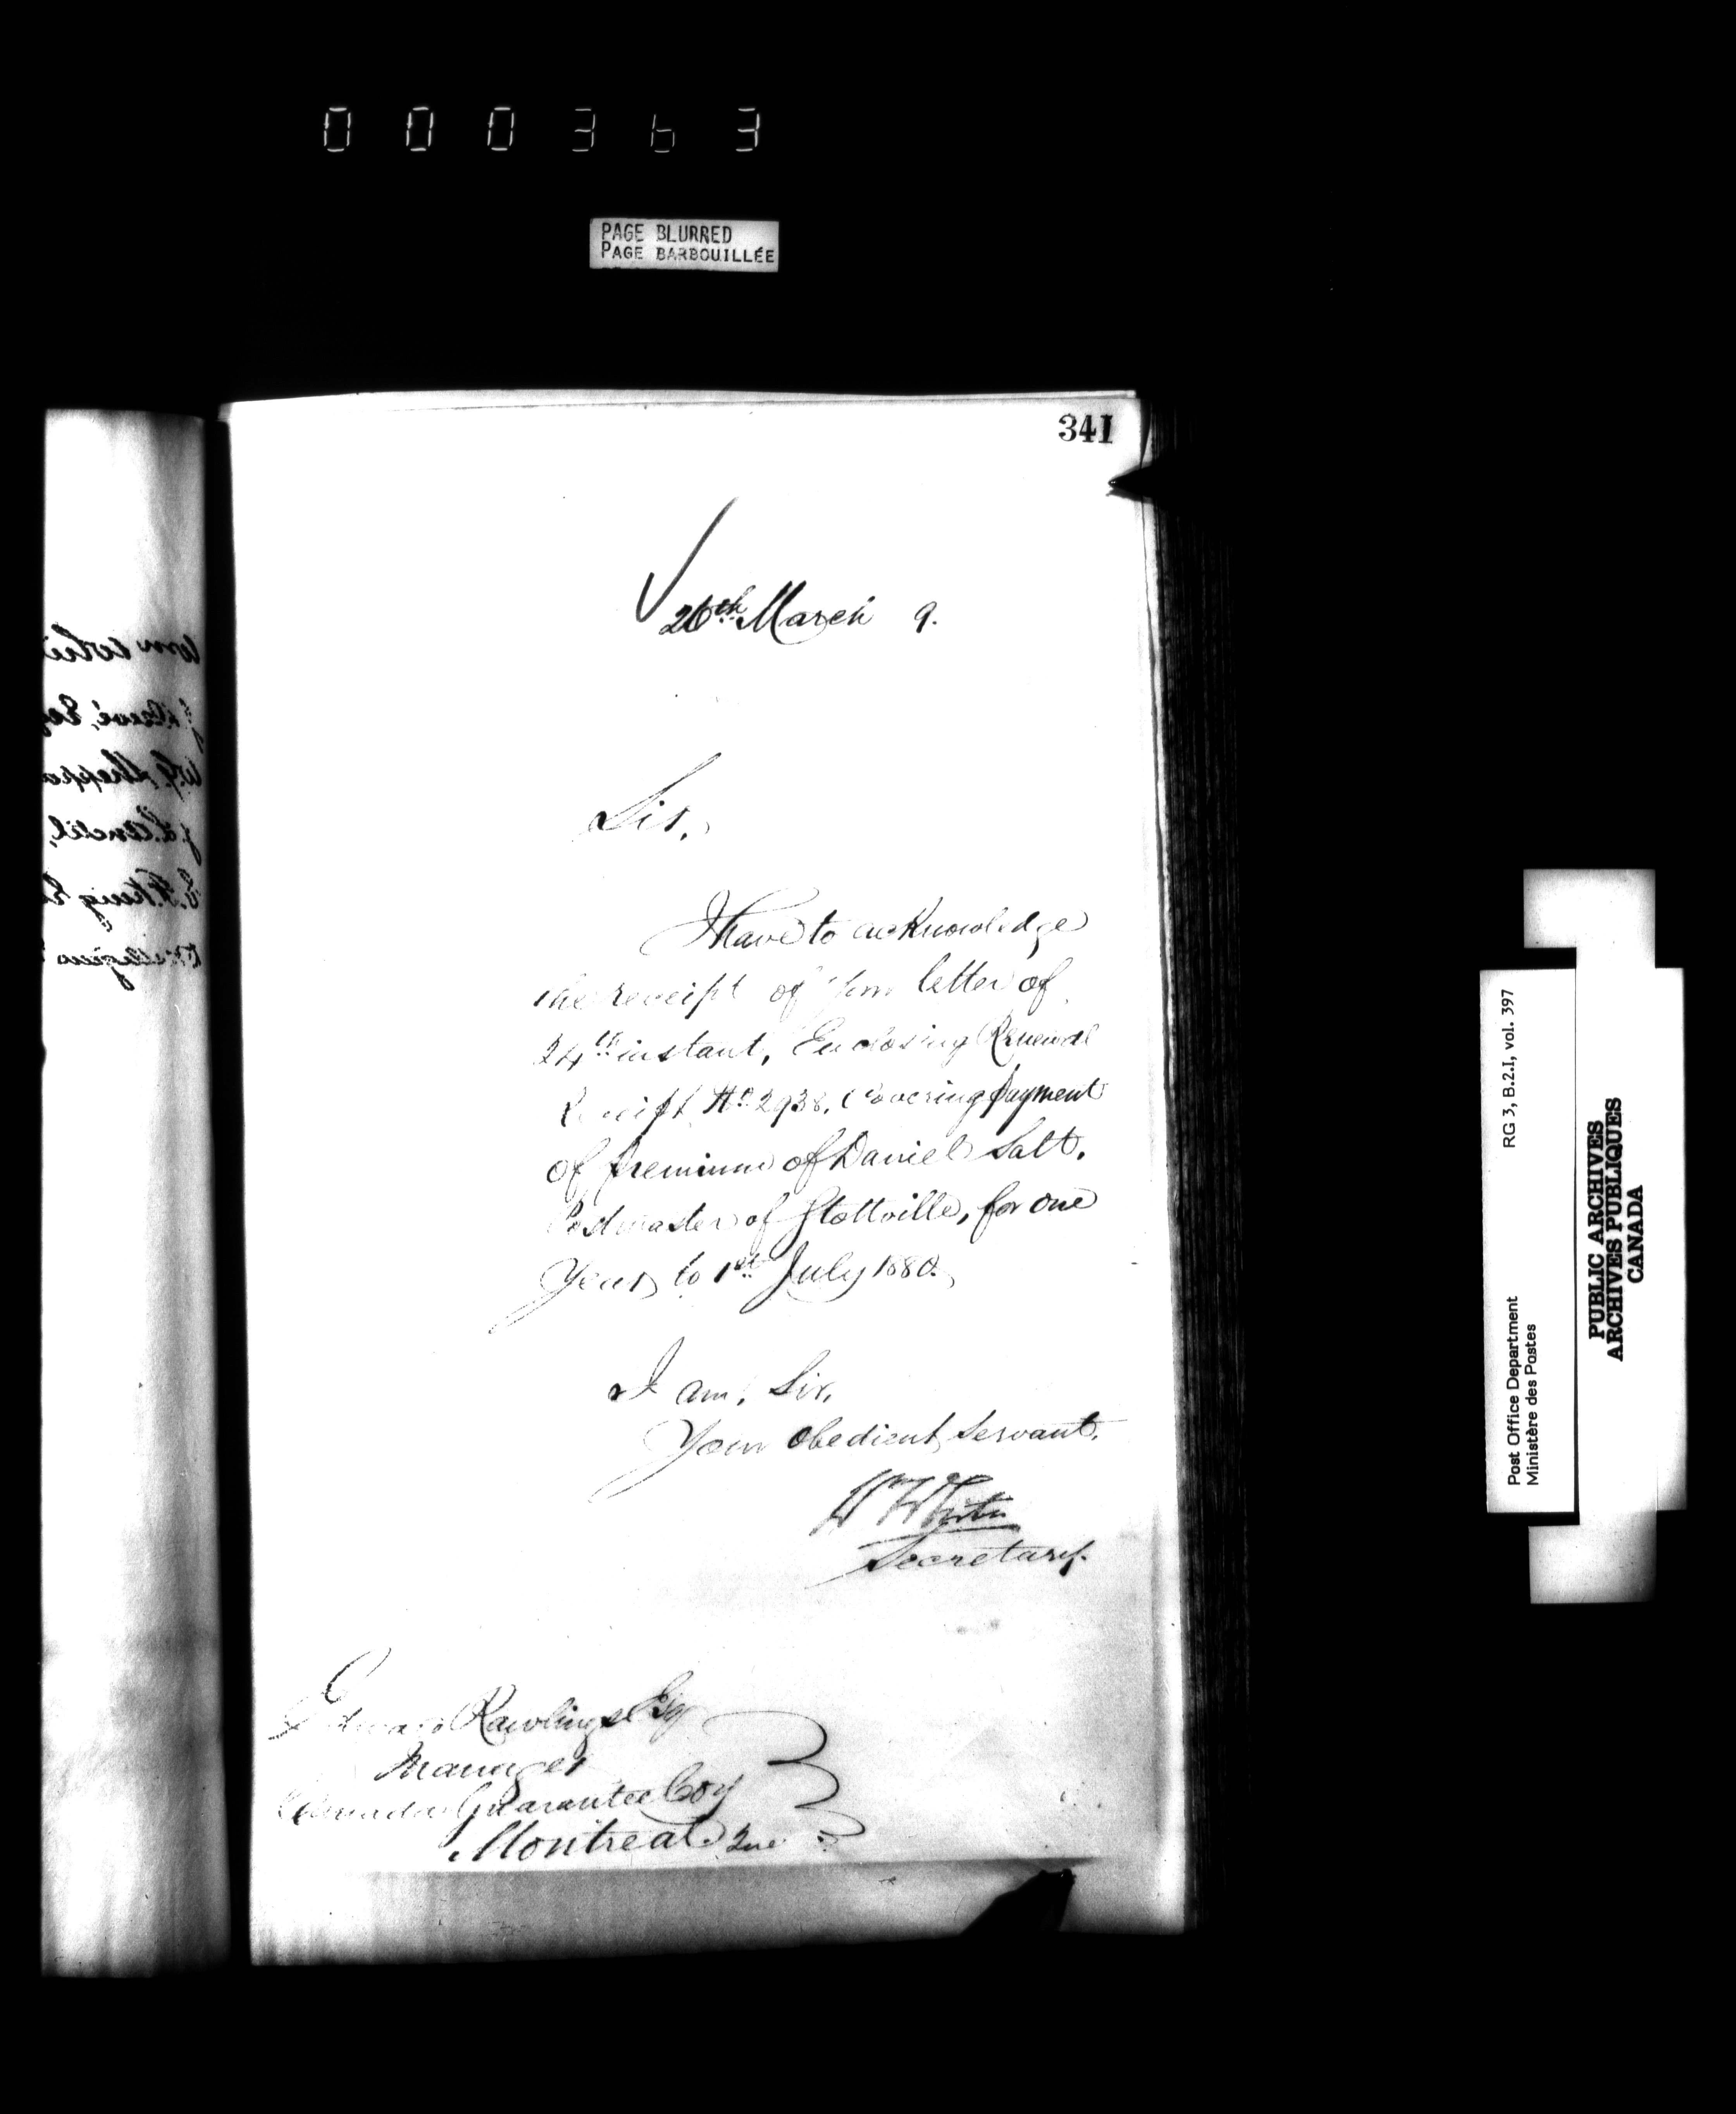 000363
PAGE BLURRED
PAGE BARBOUILLÉE
341
26th March 9.
Sir,
I have to acknowledge
the receipt of your letter of
24th instant, Enclosing Renewal
Receipt No 2938, Covering payment
of premium of Daniel Salt,
Postmaster of Stottville, for one
Year to 1st July 1880.
I am, Sir,
Your Obedient Servant.
Wm White
Secretary.
Edward Rawlings Esq
Manager
Canada Guarantee Coy
Montreal Que
RG 3, B.2.I, vol. 397
Post Office Department
Ministère des Postes
PUBLIC ARCHIVES
ARCHIVES PUBLIQUES
CANADA